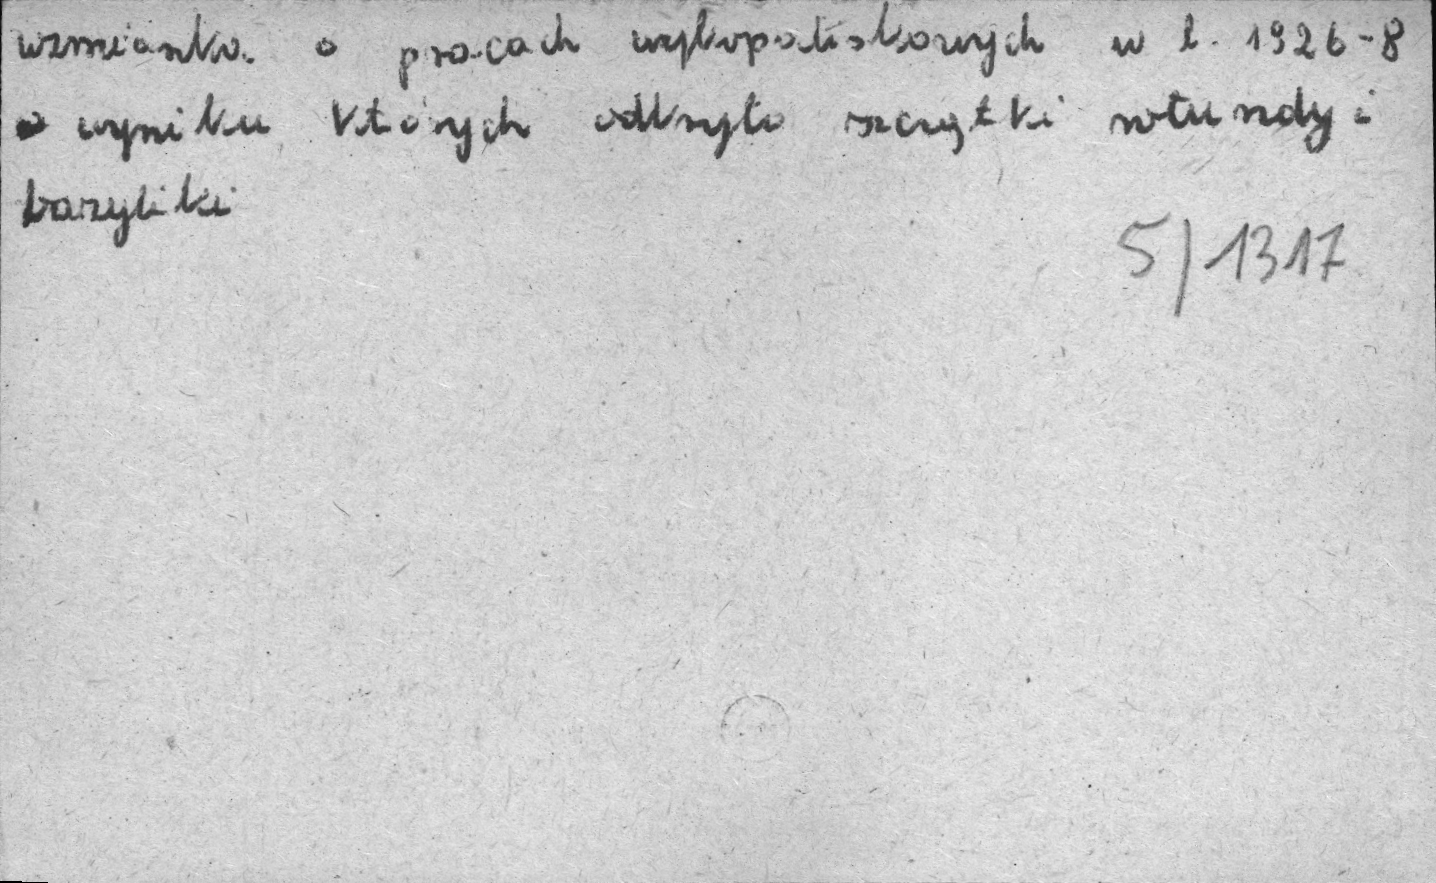 wzmianka o pracach wykopaliskowych w l. 1926-8
w wyniku których odkryto szczątki rotundy i
bazyliki
5/1317